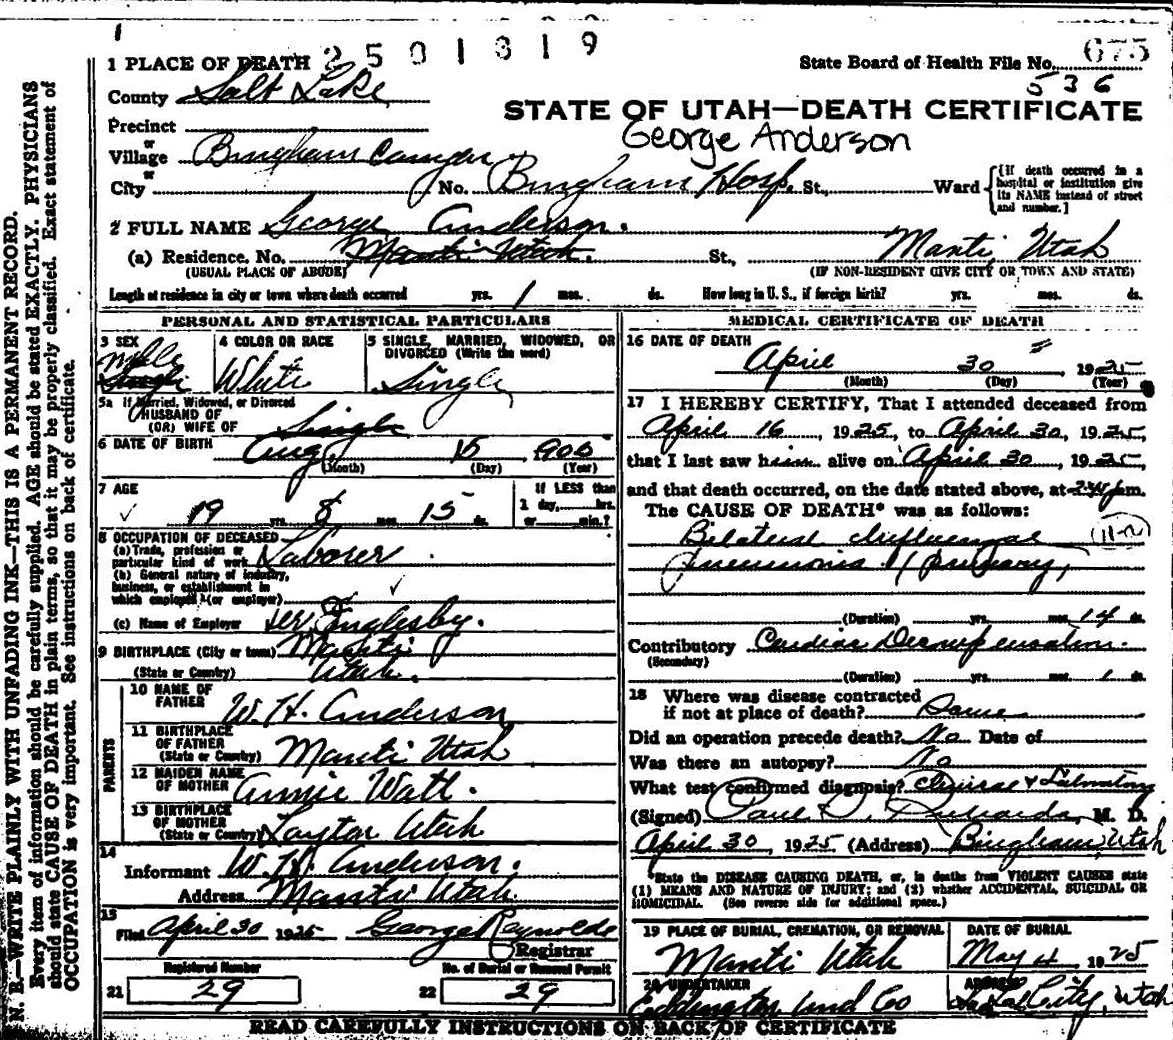 1
2501319
1 PLACE OF DEATH
State Board of Health File No. 675
536
County Salt Lake
STATE OF UTAH—DEATH CERTIFICATE
George Anderson
Precinct
or
Village Bingham Canyon
or
City No. Bingham Hosp. St., Ward {[If death occurred in a hospital or institution give its NAME instead of street and number.]
2 FULL NAME George Anderson.
(a) Residence. No. Manti Utah. St., Manti, Utah
(USUAL PLACE OF ABODE) (IF NON-RESIDENT GIVE CITY OR TOWN AND STATE)
Length of residence in city or town where death occurred yrs. 1 mos. ds. How long in U. S., if foreign birth? yrs. mos. ds.
PERSONAL AND STATISTICAL PARTICULARS
3 SEX Male Single
4 COLOR OR RACE White
5 SINGLE, MARRIED, WIDOWED, OR DIVORCED (Write the word) Single
5a If Married, Widowed, or Divorced
HUSBAND OF
(OR) WIFE OF Single
6 DATE OF BIRTH Aug 15 900
(Month) (Day) (Year)
7 AGE 19 yrs. 8 mos. 15 ds.
If LESS than
1 day, hrs.
or min.?
8 OCCUPATION OF DECEASED
(a) Trade, profession or
particular kind of work Laborer
(b) General nature of industry,
business, or establishment in
which employed (or employer)
(c) Name of Employer Inglesby.
9 BIRTHPLACE (City or town) Manti
(State or Country) Utah.
PARENTS
10 NAME OF FATHER W. H. Anderson
11 BIRTHPLACE OF FATHER (State or Country) Manti Utah
12 MAIDEN NAME OF MOTHER Annie Watt.
13 BIRTHPLACE OF MOTHER (State or Country) Layton Utah
14
Informant W. H. Anderson.
Address Manti Utah.
15
Filed April 30 1925 George Reynolds
Registrar
Registered Number
21 29
No. of Burial or Removal Permit
22 29
MEDICAL CERTIFICATE OF DEATH
16 DATE OF DEATH
April 30 , 1925
(Month) (Day) (Year)
17 I HEREBY CERTIFY, That I attended deceased from
April 16, 1925, to April 30, 1925,
that I last saw him alive on April 30, 1925,
and that death occurred, on the date stated above, at m.
The CAUSE OF DEATH* was as follows:
Bilateral Influenzal (11-2)
Pneumonia (primary)
(Duration) yrs. mos. 14 ds.
Contributory Cardiac Decompensation.
(Secondary)
(Duration) yrs. mos. 1 ds.
18 Where was disease contracted
if not at place of death? Same
Did an operation precede death? No Date of
Was there an autopsy? No
What test confirmed diagnosis? Clinical & Laboratory
(Signed) Paul S. Richards, M. D.
April 30, 1925 (Address) Bingham, Utah
*State the DISEASE CAUSING DEATH, or, in deaths from VIOLENT CAUSES state
(1) MEANS AND NATURE OF INJURY; and (2) whether ACCIDENTAL, SUICIDAL OR
HOMICIDAL. (See reverse side for additional space.)
19 PLACE OF BURIAL, CREMATION, OR REMOVAL
Manti Utah
DATE OF BURIAL
May 4, 1925
20 UNDERTAKER
Eddington Und Co
ADDRESS
City, Utah
READ CAREFULLY INSTRUCTIONS ON BACK OF CERTIFICATE
N. B.—WRITE PLAINLY WITH UNFADING INK—THIS IS A PERMANENT RECORD.
Every item of information should be carefully supplied. AGE should be stated EXACTLY. PHYSICIANS
should state CAUSE OF DEATH in plain terms, so that it may be properly classified. Exact statement of
OCCUPATION is very important. See instructions on back of certificate.